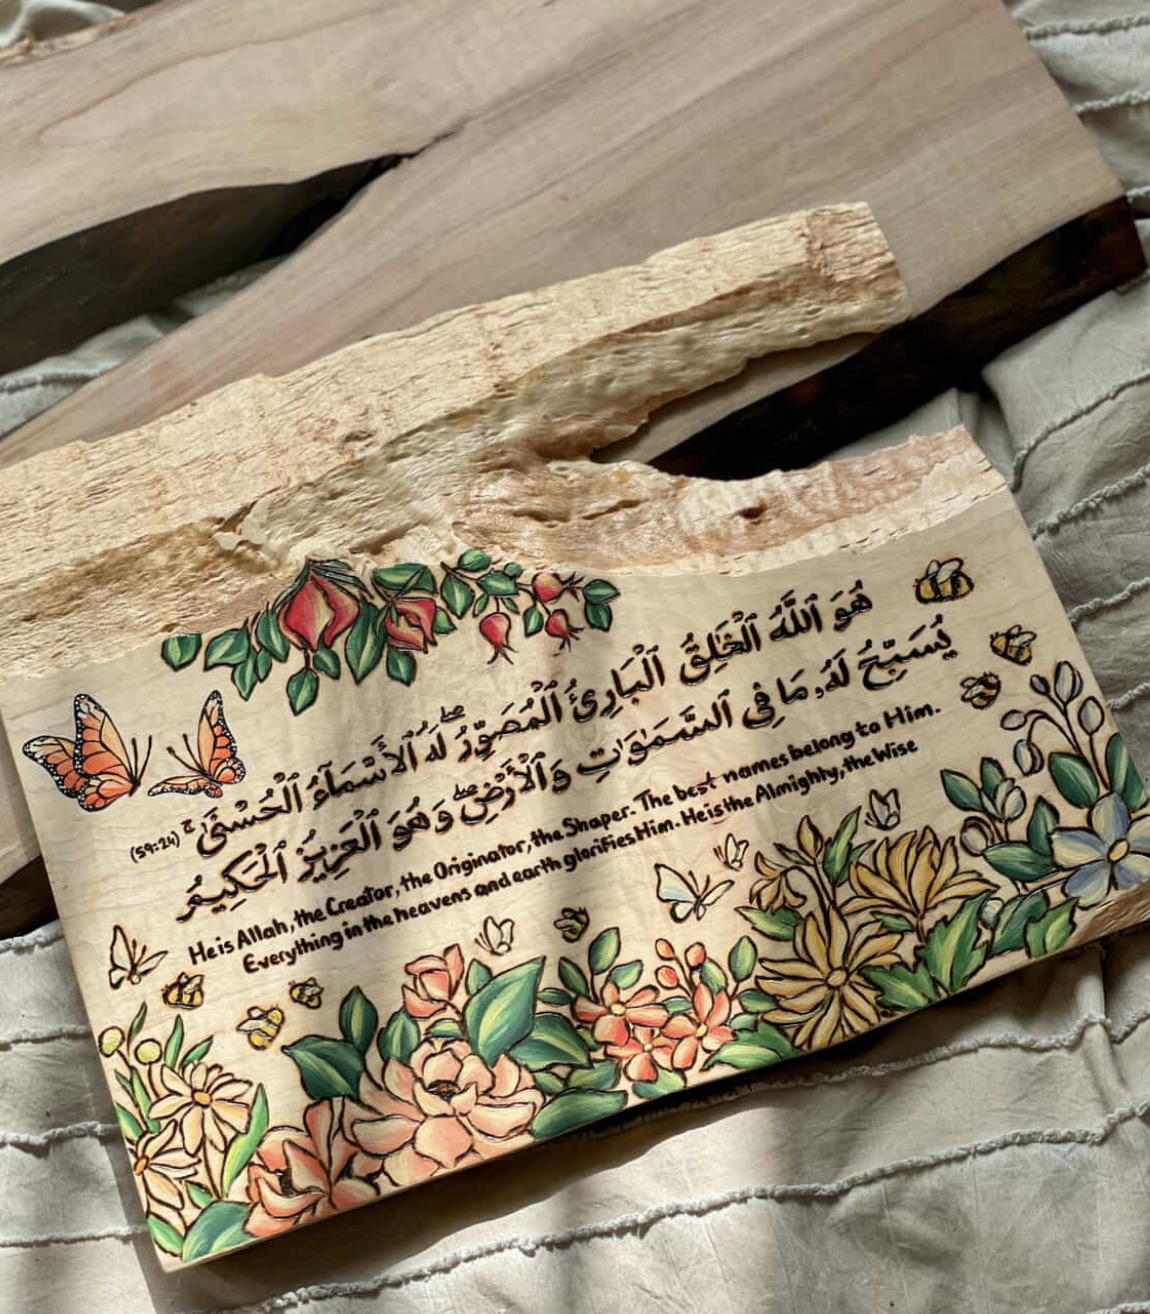 هُوَ ٱللَّهُ ٱلْخَٰلِقُ ٱلْبَارِئُ ٱلْمُصَوِّرُ ۖ لَهُ ٱلْأَسْمَآءُ ٱلْحُسْنَىٰ ۚ
يُسَبِّحُ لَهُۥ مَا فِى ٱلسَّمَٰوَٰتِ وَٱلْأَرْضِ ۖ وَهُوَ ٱلْعَزِيزُ ٱلْحَكِيمُ
(59:24)
He is Allah, the Creator, the Originator, the Shaper. The best names belong to Him.
Everything in the heavens and earth glorifies Him. He is the Almighty, the Wise